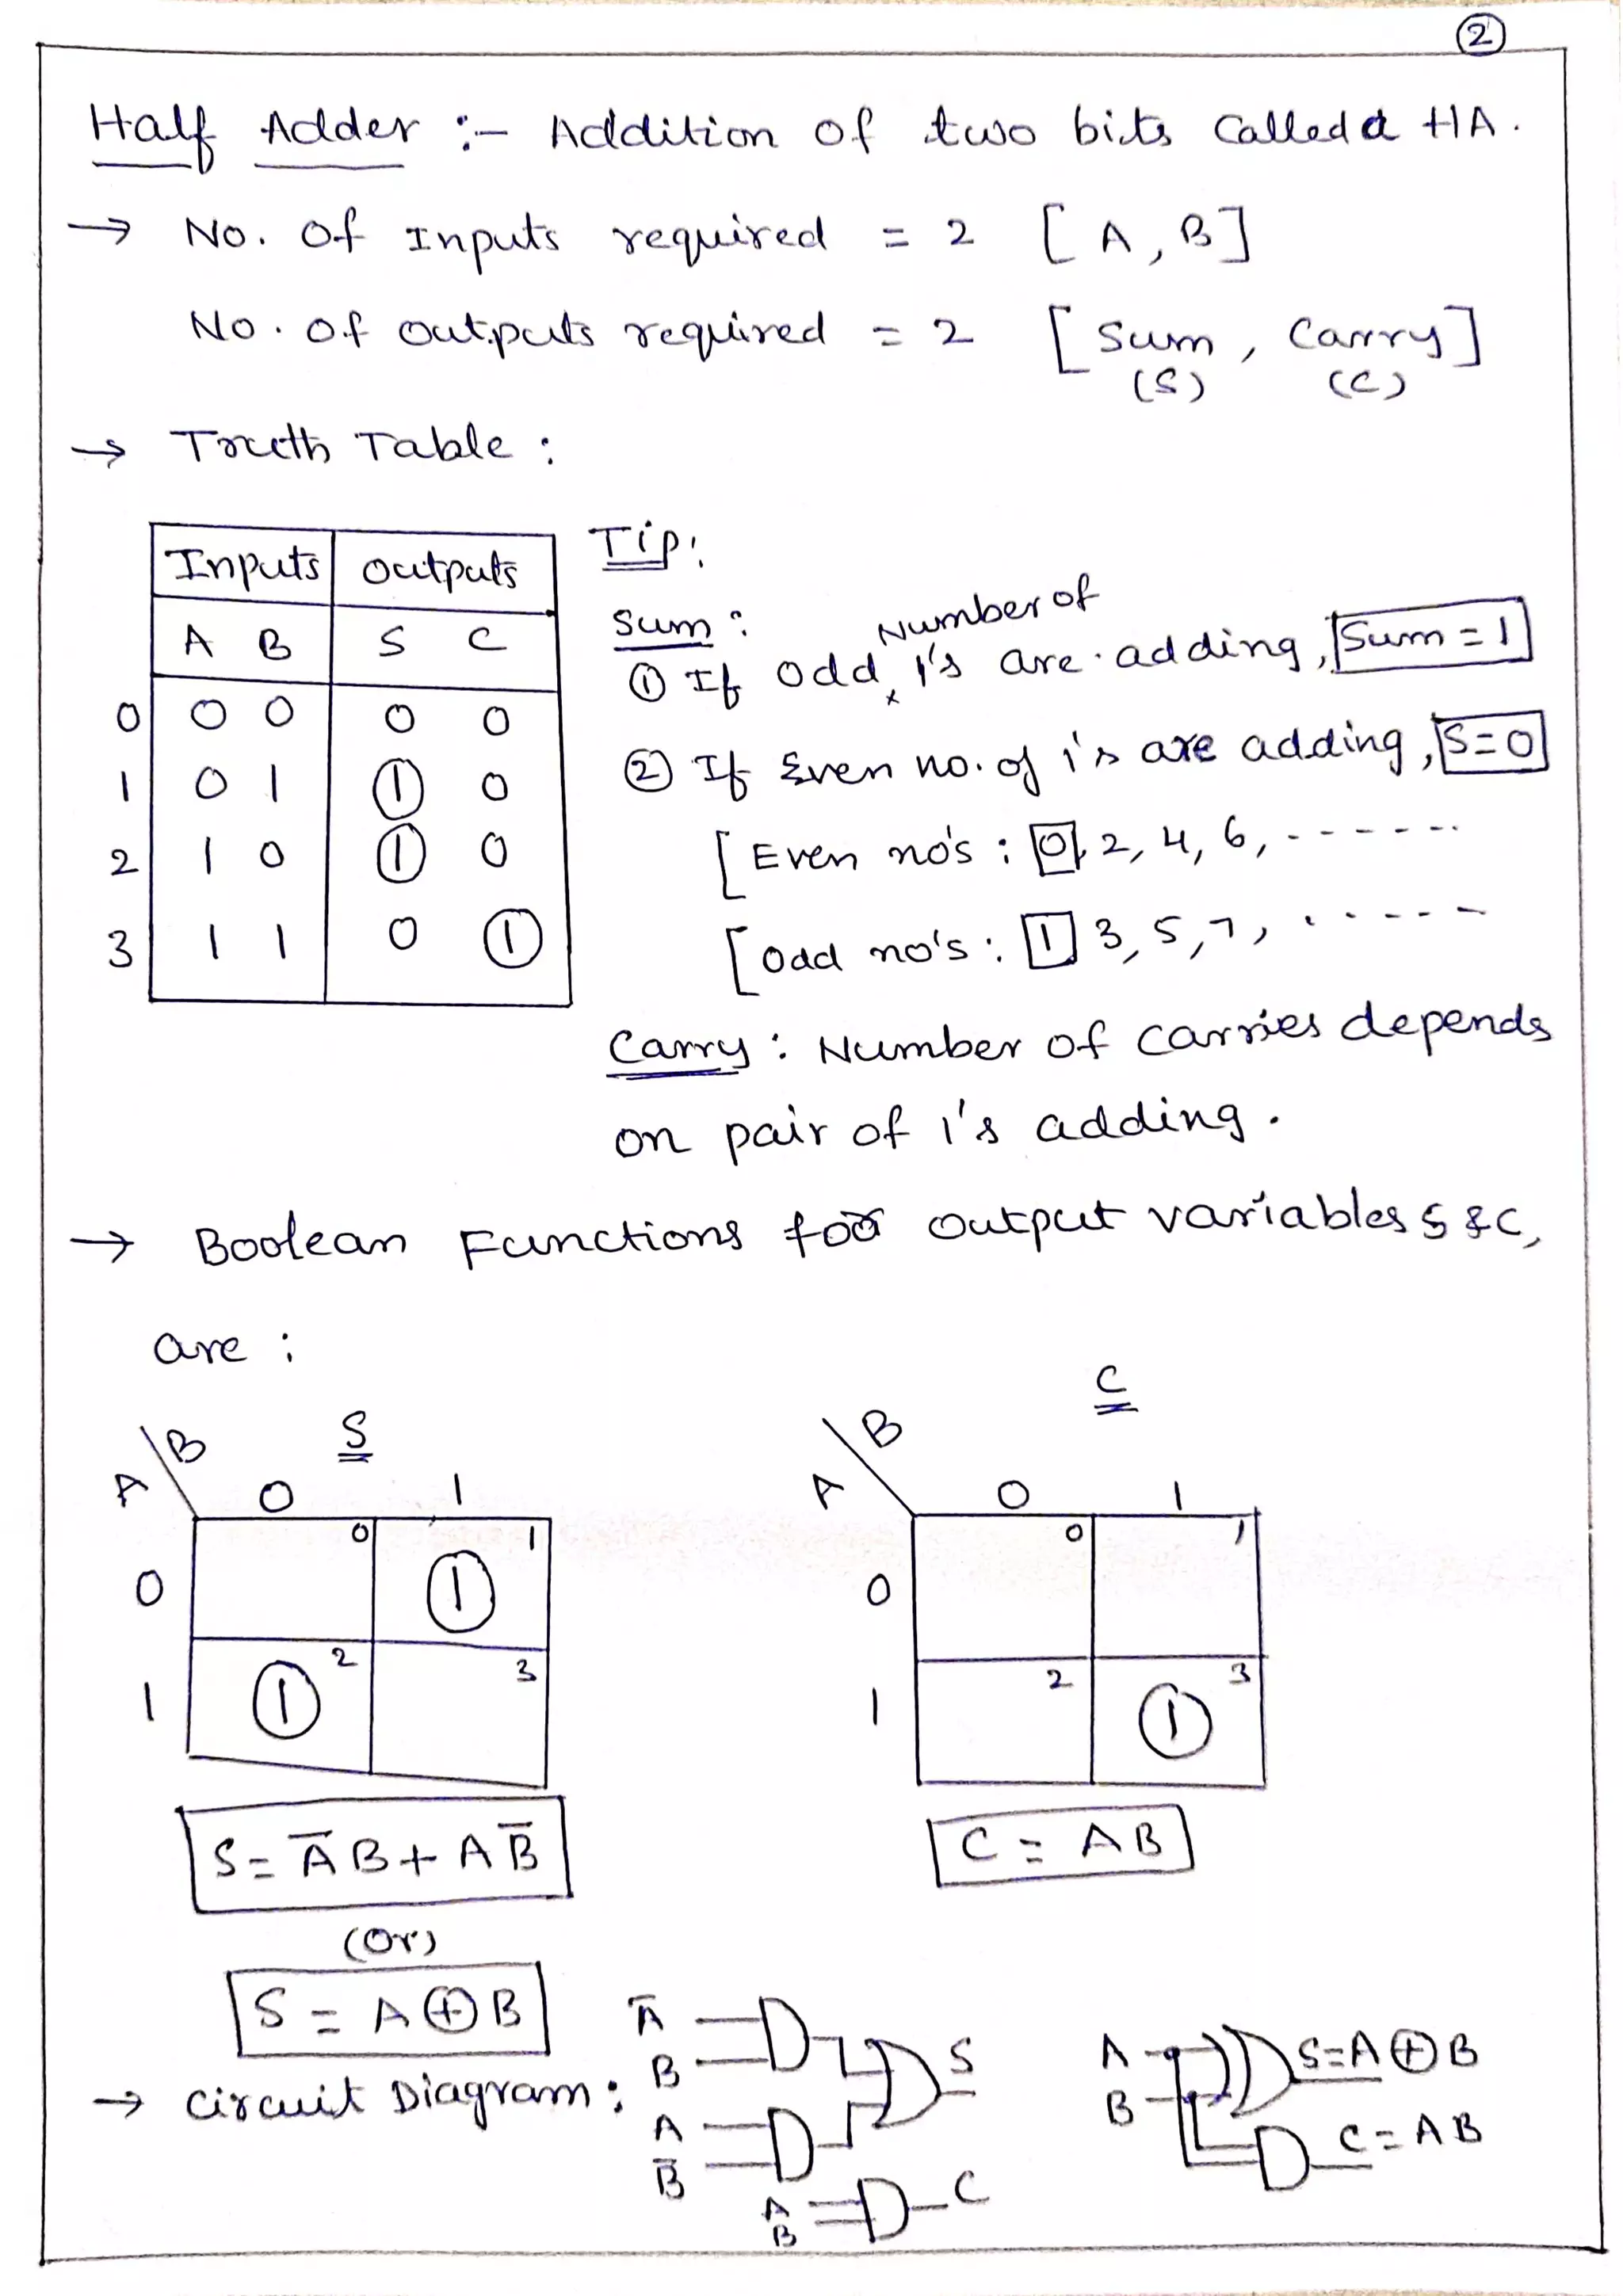 2
Half Adder :- Addition of two bits called a HA.
→ No. of Inputs required = 2 [A, B]
No. of outputs required = 2 [Sum, Carry]
(S) (C)
→ Truth Table :
Inputs outputs
A B S C
0 0 0 0 0
1 0 1 1 0
2 1 0 1 0
3 1 1 0 1
Tip:
Sum :
Number of
① If odd 1's are adding, Sum = 1
② If Even no. of 1's are adding, S=0
[Even no's : 0, 2, 4, 6, -------
[odd no's : 1 3, 5, 7, ------
Carry : Number of carries depends
on pair of 1's adding.
→ Boolean Functions for output variables S & C,
are :
S
A B
0 1
0 0 1 1
1 1 2 3
S = A̅B + AB̅
(or)
S = A⊕B
C
A B
0 1
0 0 1
1 2 1 3
C = AB
→ circuit Diagram :
A̅
B
A
B̅
S
A
B
C
A
B
S=A⊕B
C = AB